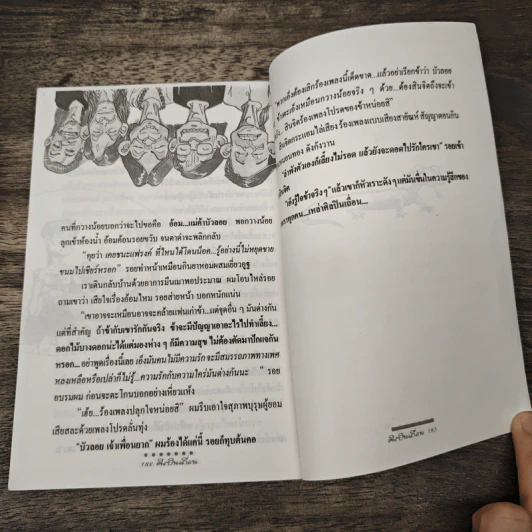 คนที่กวางน้อยบอกว่าจะไปขอคือ อ้อม...แม่ค้าบัวลอย พอกวางน้อย
ลุกเข้าห้องน้ำ อ้อมค้อนรอยขวับ จนตาดำจะพลิกกลับ
"คุยว่า เคยชนะแฟรงค์ ที่ไหนได้โดนน็อค...รู้อย่างนี้ไม่หยุดขาย
ขนมไปเชียร์หรอก" รอยทำหน้าเหมือนกินยาหอมผสมเยี่ยวอูฐ
เราเดินกลับบ้านด้วยอาการมึนเมาพอประมาณ ผมโอบไหล่รอย
ถามเขาว่า เสียใจเรื่องอ้อมไหม รอยส่ายหน้า บอกหนักแน่น
"เขาอาจจะเหมือนอาจจะคล้ายแฟนเก่าข้า...แต่จุดอื่น ๆ มันต่างกัน
แต่ที่สำคัญ ถ้าข้ากับเขารักกันจริง ข้าจะมีปัญญาเอาอะไรไปทำเลี้ยง...
ดอกไม้บางดอกน่ะได้แต่มองห่าง ๆ ก็มีความสุข ไม่ต้องตัดมาปักแจกัน
หรอก... อย่าพูดเรื่องนี้เลย เอ็งมันคนไม่มีความรัก จะมีสมรรถภาพทางเพศ
หลงเหลือหรือเปล่าก็ไม่รู้...ความรักกับความใคร่มันต่างกันนะ " รอย
อบรมผม ก่อนจะตะโกนบอกอย่างเหี่ยวแห้ง
"เฮ้ย...ร้องเพลงปลุกใจหน่อยสิ" ผมรีบเอาใจสุภาพบุรุษผู้ยอม
เสียสละด้วยเพลงโปรดลั่นทุ่ง
"บัวลอย เจ้าเพื่อนยาก" ผมร้องได้แค่นี้ รอยก็ทุบต้นคอ
182 ศิลปินเถื่อน
"พวกเอ็งต้องเลิกร้องเพลงนี้เด็ดขาด...แล้วอย่าเรียกข้าว่า บัวลอย
ข้าตะเค็งเหมือนกวางน้อยจริง ๆ ด้วย...ต้องสินจิตถึงจะเข้า
สินจิตร้องเพลงโปรดของข้าหน่อยสิ"
สินจิตกระแอมไล่เสียง ร้องเพลงแบบเสียงสายัณห์ สัญญาตอนกิน
ดังกังวาน
"ลำพังตัวเองก็เลี้ยงไม่รอด แล้วยังจะดอดไปรักใครเขา" รอยเข้า
"เอ็งรู้ใจข้าจริง ๆ" แล้วเขาก็หัวเราะดังๆ แต่มันขื่นในความรู้สึกของ
ทุกคน...เหล่าศิลปินเถื่อน...
ศิลปินเถื่อน 183